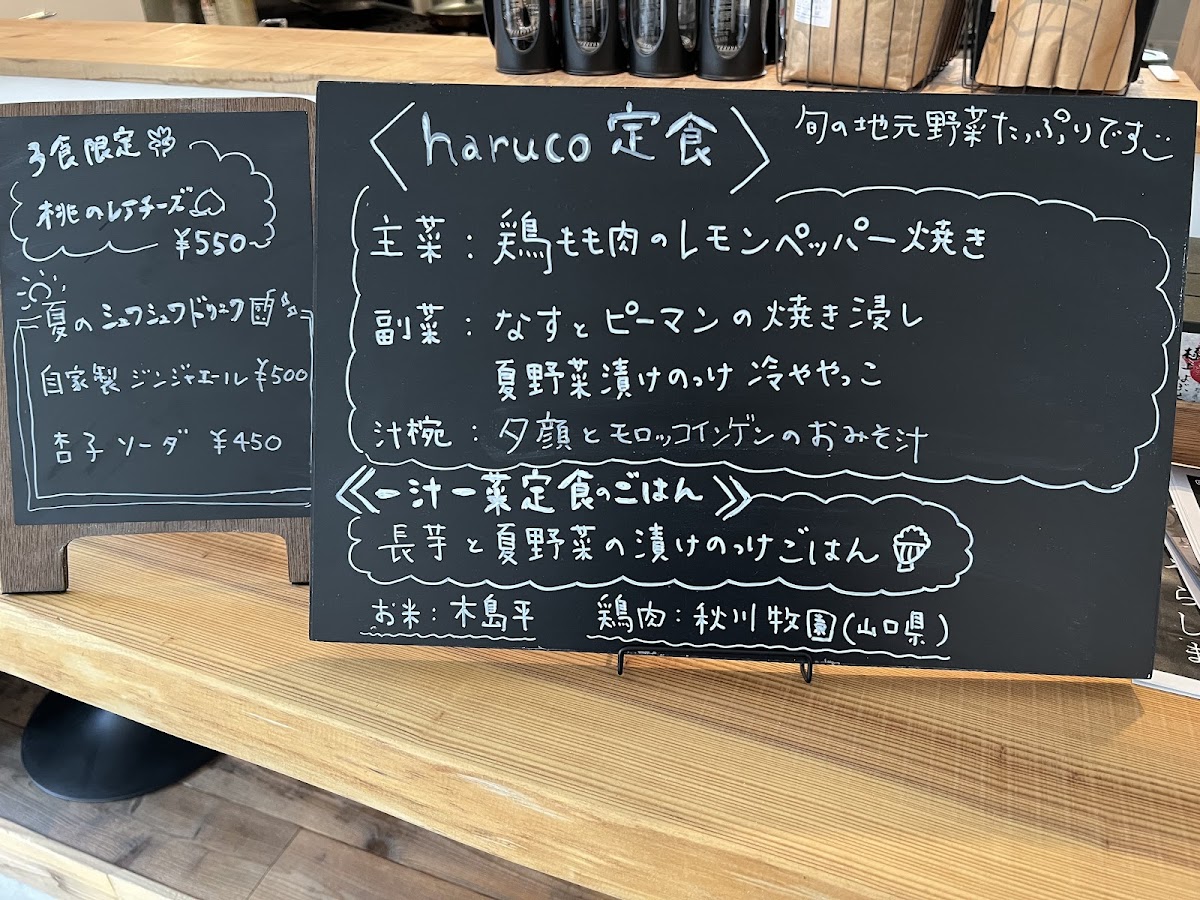 3食限定
桃のレアチーズ
¥550
夏のシュワシュワドリンク
自家製 ジンジャエール ¥500
杏子ソーダ ¥450
〈haruco定食〉
旬の地元野菜たっぷりですよ
主菜：鶏もも肉のレモンペッパー焼き
副菜：なすとピーマンの焼き浸し
夏野菜漬けのっけ 冷ややっこ
汁椀：夕顔とモロッコインゲンのおみそ汁
《一汁一菜定食のごはん》
長芋と夏野菜の漬けのっけごはん
お米：木島平 鶏肉：秋川牧園(山口県)